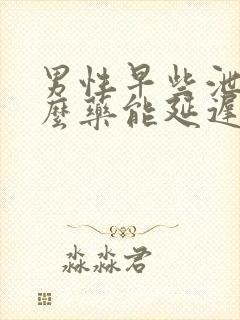 男性早些泄
麼藥能延遲
淼淼君